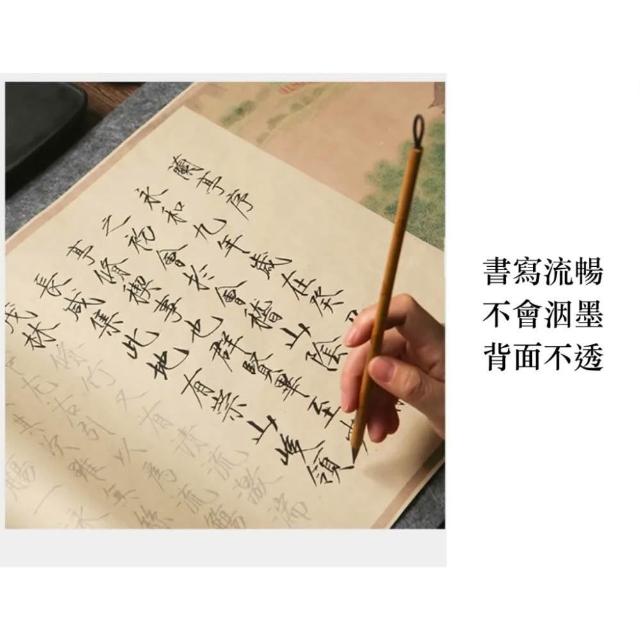 蘭亭序
永和九年歲在癸
之初會扵會稽山陰
亭脩禊事也群賢畢至
長咸集此地有崇山峻領
茂林脩竹又有清流激湍
左右引以為流觴
其次雖無絲
觴一詠
書寫流暢
不會洇墨
背面不透